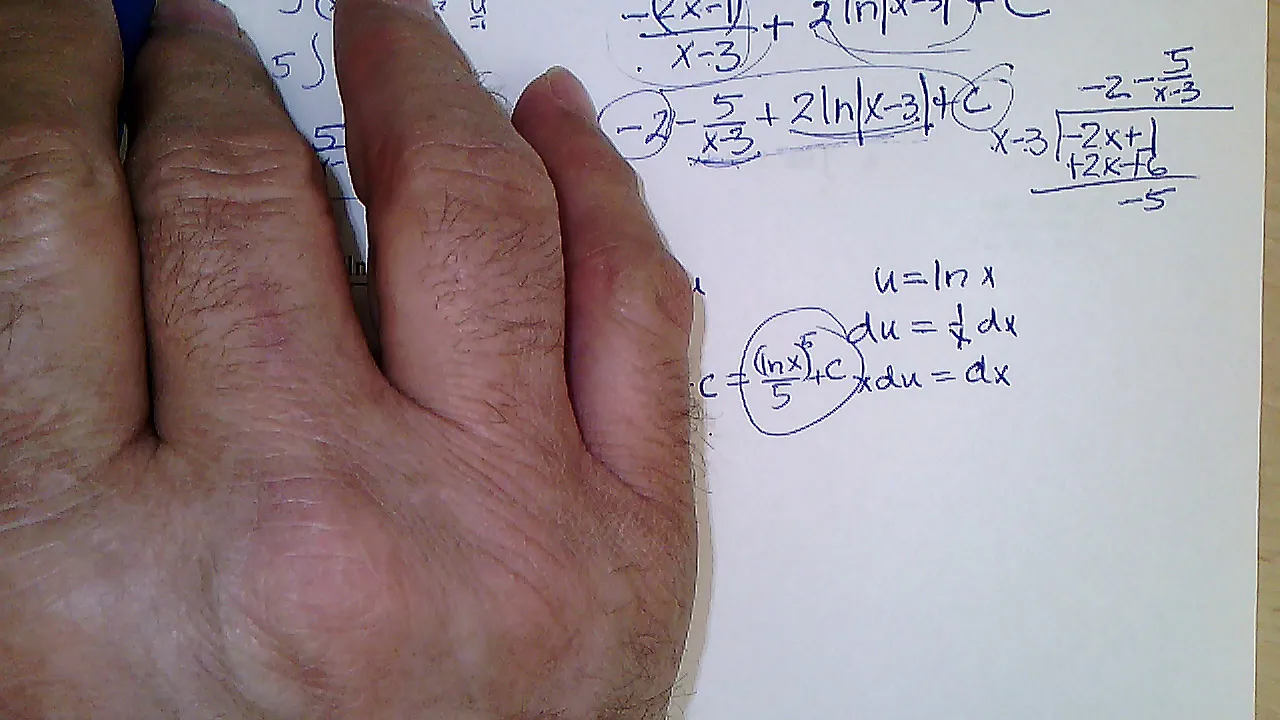 -(2x-1)/(x-3) + 2 ln|x-3| + C
5 ∫
-2 - 5/(x-3) + 2ln|x-3| + C
-2 - 5/(x-3)
x-3 | -2x+1
+2x-+6
-5
u = ln x
du = 1/x dx
c = (lnx)^5/5 + C
xdu = dx